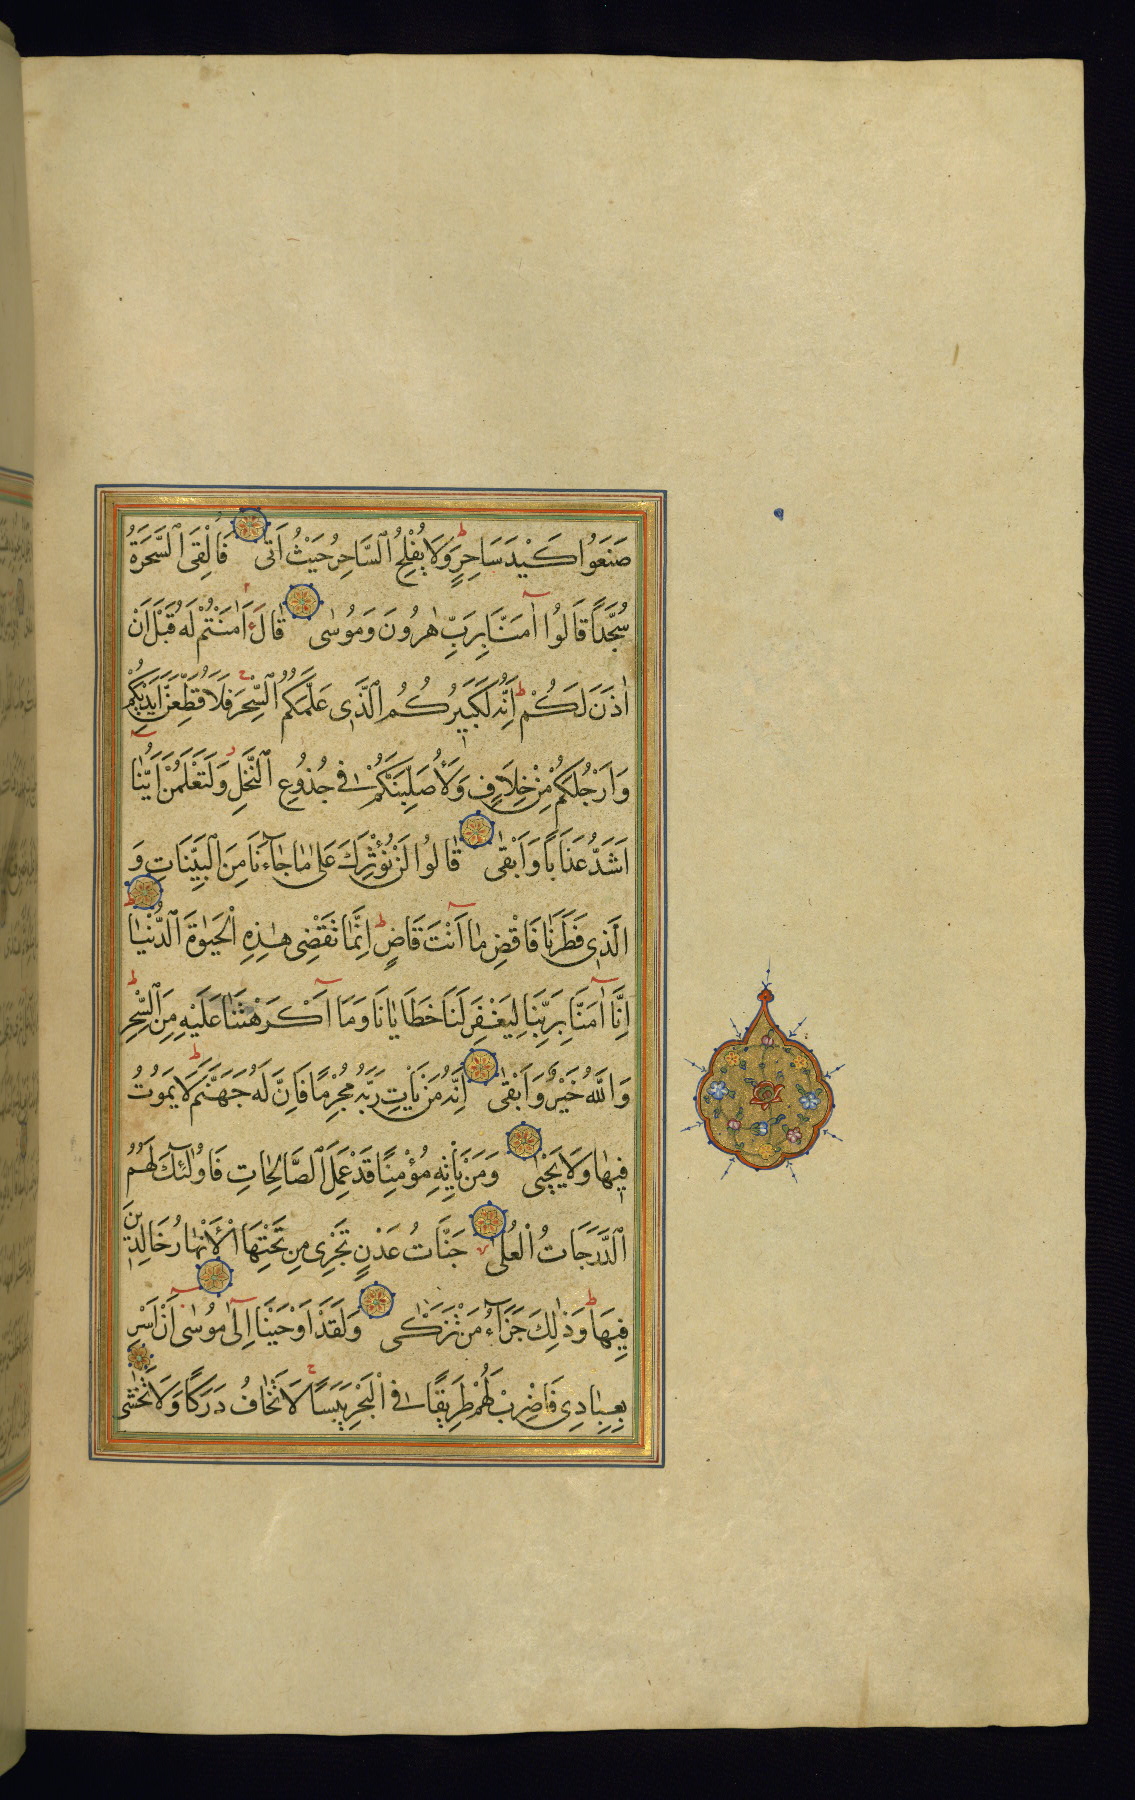 صَنَعُوا كَيْدَ سَاحِرٍ وَلَا يُفْلِحُ السَّاحِرُ حَيْثُ اَتٰى فَاُلْقِىَ السَّحَرَةُ
سُجَّدًا قَالُوا اٰمَنَّا بِرَبِّ هٰرُونَ وَمُوسٰى قَالَ ءَاٰمَنْتُمْ لَهُ قَبْلَ اَنْ
اٰذَنَ لَكُمْ اِنَّهُ لَكَبِيرُكُمُ الَّذِى عَلَّمَكُمُ السِّحْرَ فَلَاُقَطِّعَنَّ اَيْدِيَكُمْ
وَاَرْجُلَكُمْ مِنْ خِلَافٍ وَلَاُصَلِّبَنَّكُمْ فِى جُذُوعِ النَّخْلِ وَلَتَعْلَمُنَّ اَيُّنَا
اَشَدُّ عَذَابًا وَاَبْقٰى قَالُوا لَنْ نُؤْثِرَكَ عَلٰى مَا جَاءَنَا مِنَ الْبَيِّنَاتِ وَ
الَّذِى فَطَرَنَا فَاقْضِ مَا اَنْتَ قَاضٍ اِنَّمَا تَقْضِى هٰذِهِ الْحَيٰوةَ الدُّنْيَا
اِنَّا اٰمَنَّا بِرَبِّنَا لِيَغْفِرَ لَنَا خَطَايَانَا وَمَا اَكْرَهْتَنَا عَلَيْهِ مِنَ السِّحْرِ
وَاللّٰهُ خَيْرٌ وَاَبْقٰى اِنَّهُ مَنْ يَاْتِ رَبَّهُ مُجْرِمًا فَاِنَّ لَهُ جَهَنَّمَ لَا يَمُوتُ
فِيهَا وَلَا يَحْيٰى وَمَنْ يَاْتِهِ مُؤْمِنًا قَدْ عَمِلَ الصَّالِحَاتِ فَاُولٰئِكَ لَهُمُ
الدَّرَجَاتُ الْعُلٰى جَنَّاتُ عَدْنٍ تَجْرِى مِنْ تَحْتِهَا الْاَنْهَارُ خَالِدِينَ
فِيهَا وَذٰلِكَ جَزَاءُ مَنْ تَزَكّٰى وَلَقَدْ اَوْحَيْنَا اِلٰى مُوسٰى اَنْ اَسْرِ
بِعِبَادِى فَاضْرِبْ لَهُمْ طَرِيقًا فِى الْبَحْرِ يَبَسًا لَا تَخَافُ دَرَكًا وَلَا تَخْشٰى